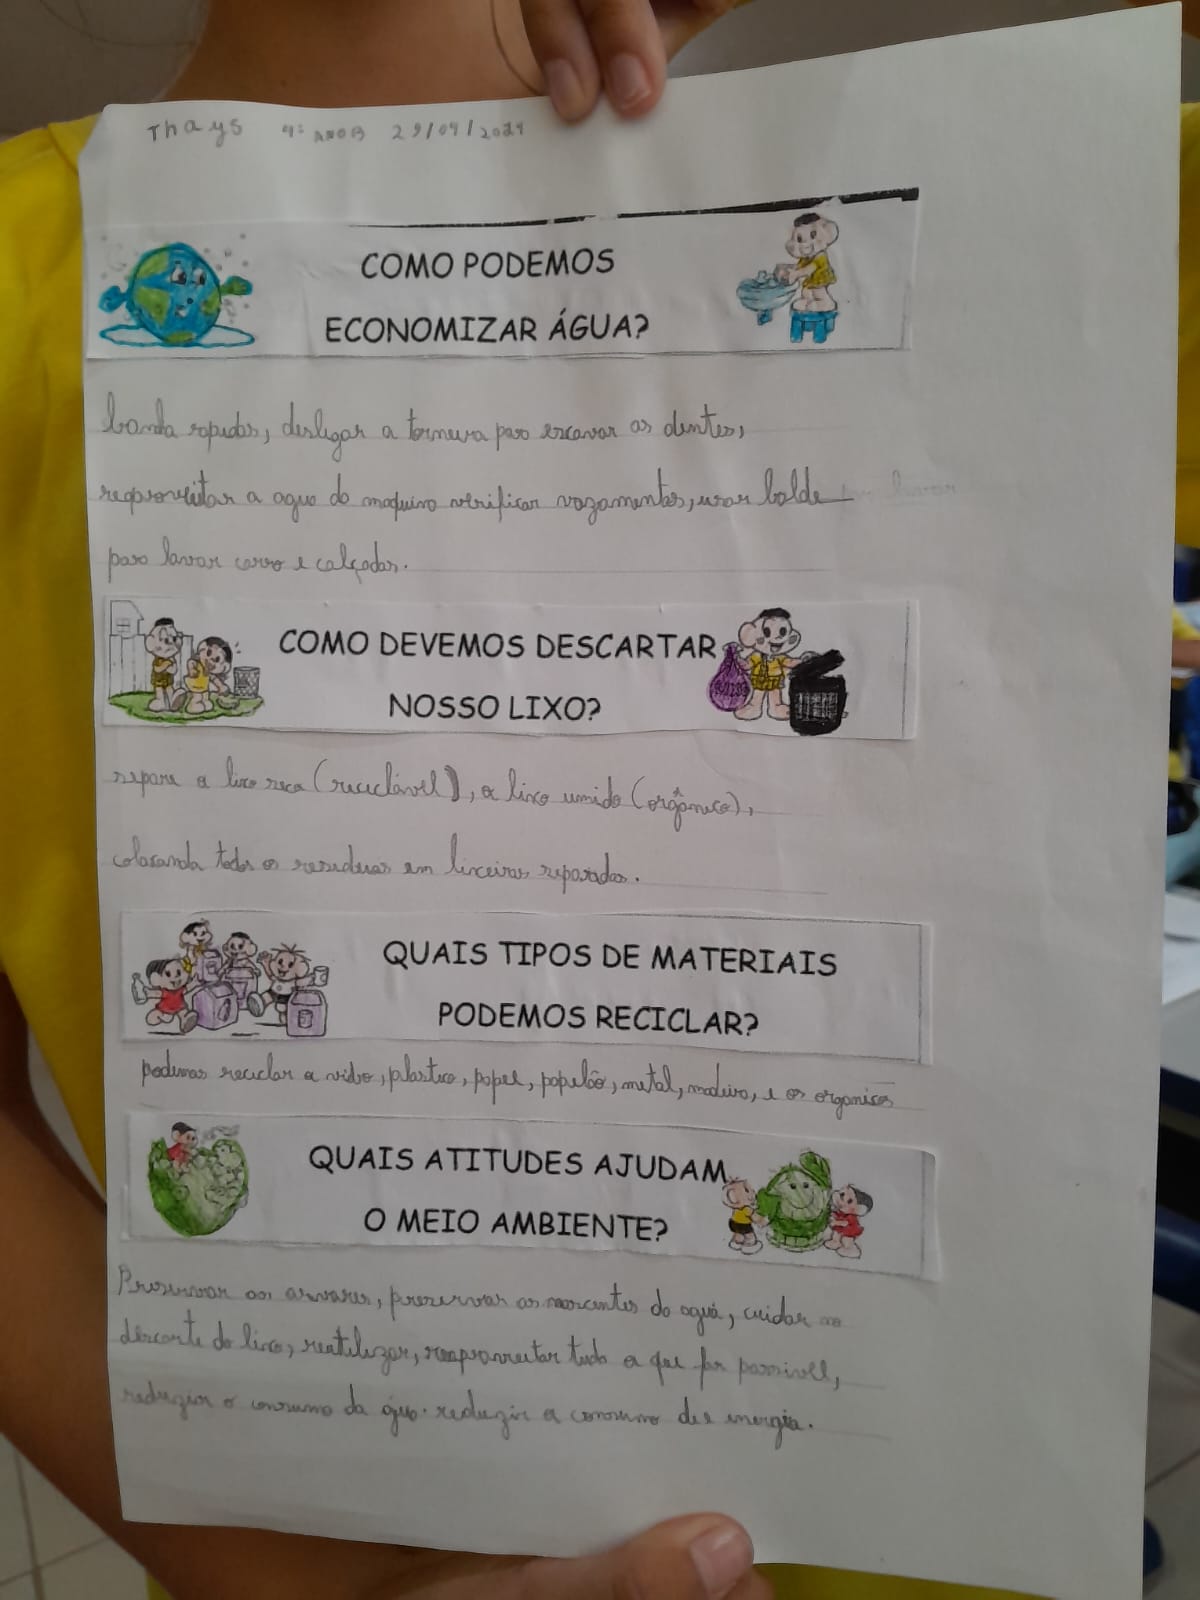 Thays 4º ANO B 29/04/2024
COMO PODEMOS
ECONOMIZAR ÁGUA?
banho rapidos, desligar a torneira para escovar os dentes,
reaproveitar a agua da maquina verificar vazamentos, usar balde
para lavar carro e calçadas.
COMO DEVEMOS DESCARTAR
NOSSO LIXO?
separe o lixo seco (reciclável), o lixo umido (orgânico),
colocando todos os residuos em lixeiras separadas.
QUAIS TIPOS DE MATERIAIS
PODEMOS RECICLAR?
podemos reciclar o vidro, plastico, papel, papelão, metal, madeira, e os organicos
QUAIS ATITUDES AJUDAM
O MEIO AMBIENTE?
Preservar as arvores, preservar as nascentes da agua, cuidar no
descarte do lixo, reutilizar, reaproveitar tudo o que for possivel,
reduzir o consumo da água. reduzir o consumo de energia.